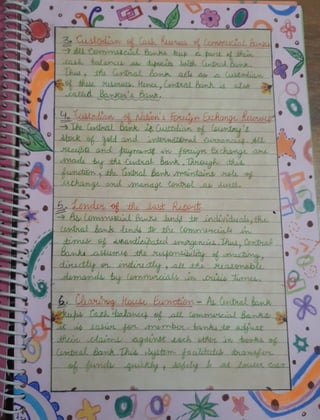 3. Custodian of Cash Reserves of Commercial Banks
→ All Commercial Banks keep a part of their
cash balances as deposits with Central Bank.
Thus, the Central Bank acts as a custodian
of these reserves. Hence, Central Bank is also
called Banker's Bank.
4. Custodian of Nation's Foreign Exchange Reserves
→ The Central Bank is Custodian of Country's
stock of gold and international currency. All
receipts and payments in foreign exchange are
made by the Central Bank. Through this
function, the Central Bank maintains rate of
exchange and manage control as well.
5. Lender of the last Resort
→ As Commercial Banks lends to individuals, the
central bank lends to the commercials in
times of unanticipated emergencies. Thus, Central
Banks assures the responsibility of meeting,
directly or indirectly, all the reasonable
demands by commercials in crisis times.
6. Clearing House Function - As Central bank
keeps Cash balancy of all commercial banks
it is easier for member banks to adjust
their claims against each other in books of
Central Bank. This system facilitates transfer
of funds quickly, safely & at lower cost.